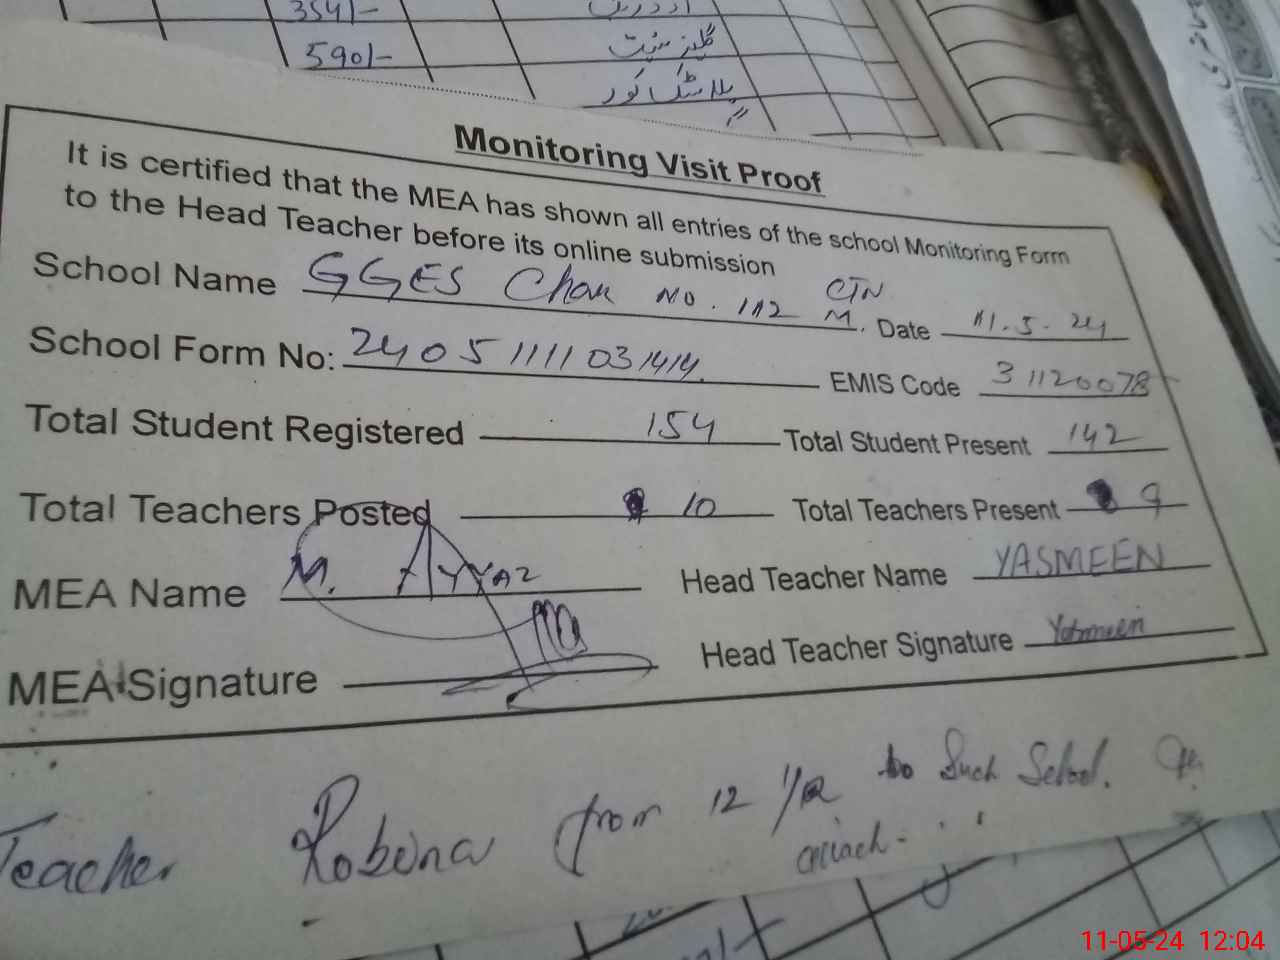 354/-
590/-
گلیز سنیٹ
پلاسٹک کور
Monitoring Visit Proof
It is certified that the MEA has shown all entries of the school Monitoring Form
to the Head Teacher before its online submission
School Name GGES Chak NO. 112 M. CTN Date 11.5.24
School Form No: 24051111031414 EMIS Code 31120078
Total Student Registered 154 Total Student Present 142
Total Teachers Posted 10 Total Teachers Present 9
MEA Name M. Ayyaz Head Teacher Name YASMEEN
MEA Signature Head Teacher Signature Yasmeen
Teacher Robina from 12 to Such School.
11-05-24 12:04